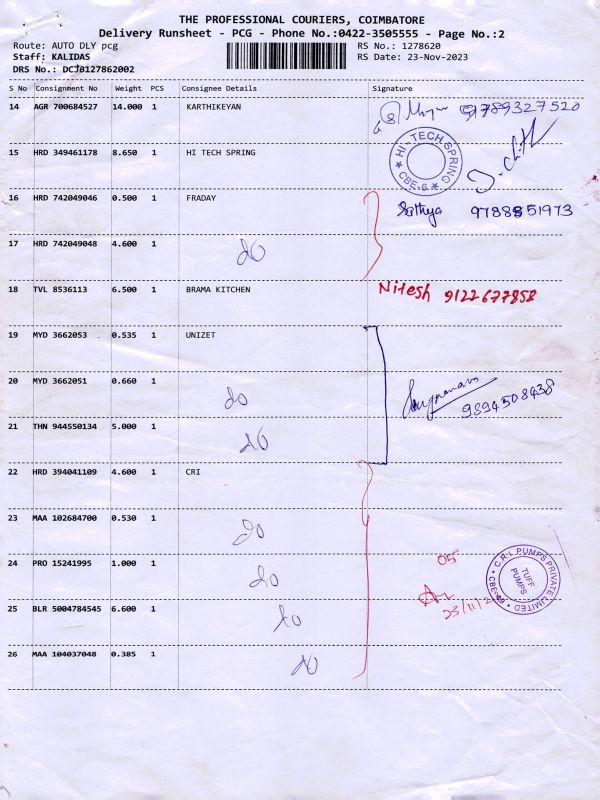 THE PROFESSIONAL COURIERS, COIMBATORE
Delivery Runsheet - PCG - Phone No.:0422-3505555 - Page No.:2
Route: AUTO DLY pcg RS No.: 1278620
Staff: KALIDAS RS Date: 23-Nov-2023
DRS No.: DCJB127862002
S No Consignment No Weight PCS Consignee Details Signature
14 AGR 700684527 14.000 1 KARTHIKEYAN 9789327520
15 HRD 349461178 8.650 1 HI TECH SPRING HI-TECH SPRING CBE-6.
16 HRD 742049046 0.500 1 FRADAY Sathya 9788851973
17 HRD 742049048 4.600 1 do
18 TVL 8536113 6.500 1 BRAMA KITCHEN Nitesh 9122677858
19 MYD 3662053 0.535 1 UNIZET
20 MYD 3662051 0.660 1 do 9894508438
21 THN 944550134 5.000 1 do
22 HRD 394041109 4.600 1 CRI
23 MAA 102684700 0.530 1 do
24 PRO 15241995 1.000 1 do 05 C.R.I. PUMPS PRIVATE LIMITED TUFF PUMPS CBE-49
25 BLR 5004784545 6.600 1 do 23/11/
26 MAA 104037048 0.385 1 do